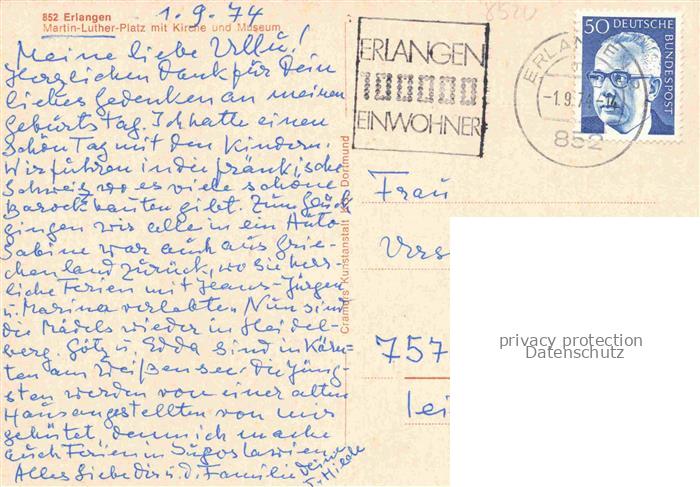 1.9.74
852 Erlangen
Martin-Luther-Platz mit Kirche und Museum
Meine liebe Ulli!
Herzlichen Dank für Dein
liebes Gedenken an meinen
Geburtstag. Ich hatte einen
schön Tag mit den Kindern.
Wir fuhren in der fränkische
Schweiz wo es viele schöne
Barockbauten gibt. Zum Glück
gingen wir alle in ein Auto
Sabine war auch aus Grie-
chenland zurück, wo sie herr-
liche Ferien mit Hans-Jürgen
u. Marina verlebten. Nun sind
die Mädels wieder in Heidel-
berg. Götz u. Edda sind in Kärn-
ten am Weißensee. Die Jüng-
sten werden von einer alten
Hausangestellten von mir
gehütet, denn ich mache
auch Ferien in Jugoslawien
Alles Liebe Dir u. d. Familie
Deine
T. Hilde
Cramers Kunstanstalt KG Dortmund
8520
ERLANGEN
100000
EINWOHNER
ERLANGEN
-1.9.74-14
852
50 DEUTSCHE
BUNDESPOST
Frau
Urs
757
privacy protection
Datenschutz